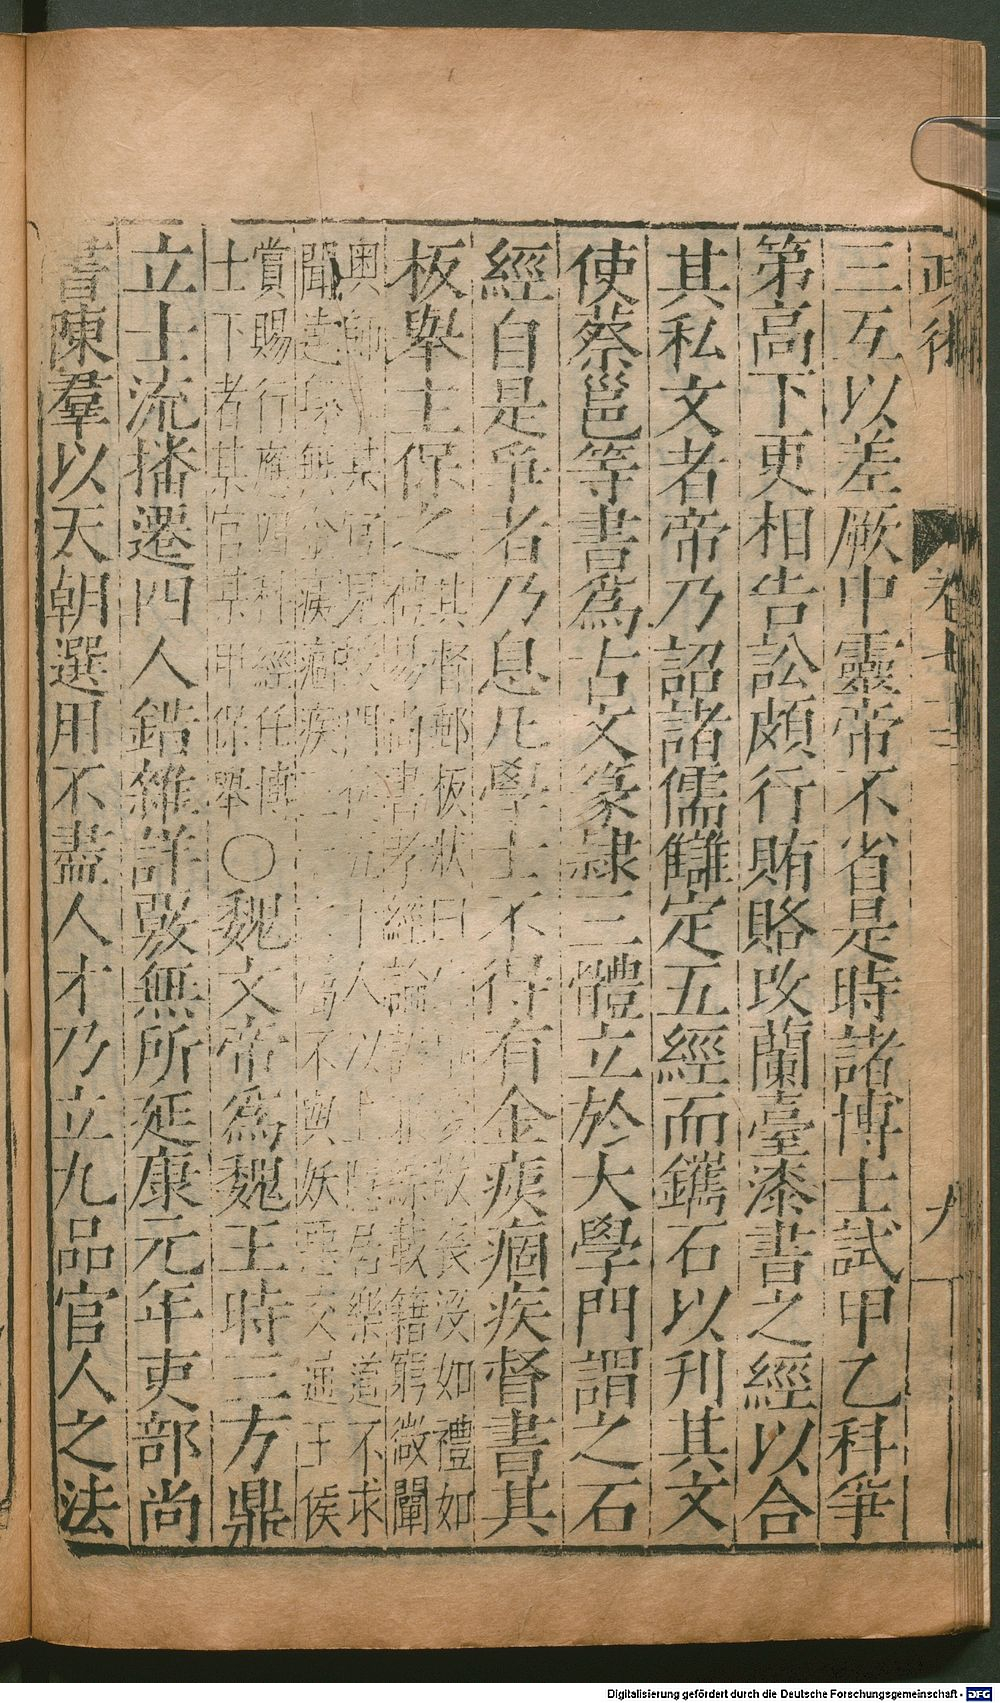 政術
卷十二
九
三互以差厥中靈帝不省是時諸博士試甲乙科爭
第高下更相告訟頗行賄賂改蘭臺漆書之經以合
其私文者帝乃詔諸儒讎定五經而鐫石以刋其文
使蔡邕等書爲古文篆隷三體立於大學門謂之石
經自是爭者乃息凡學士不得有金痍痼疾督書其
板舉主保之
其督郵板狀曰生事愛敬喪沒如禮如
禮易尚書孝經論語兼綜載籍窮微闡
奧師事某官見授門徒五十人以上隱居樂道不求
聞達身無金痍痼疾三十六屬不與妖惡交通王侯
賞賜行應四科經任博
士下者某官某甲保舉
○魏文帝爲魏王時三方鼎
立士流播遷四人錯雜詳覈無所延康元年吏部尚
書陳羣以天朝選用不盡人才乃立九品官人之法
Digitalisierung gefördert durch die Deutsche Forschungsgemeinschaft - DFG